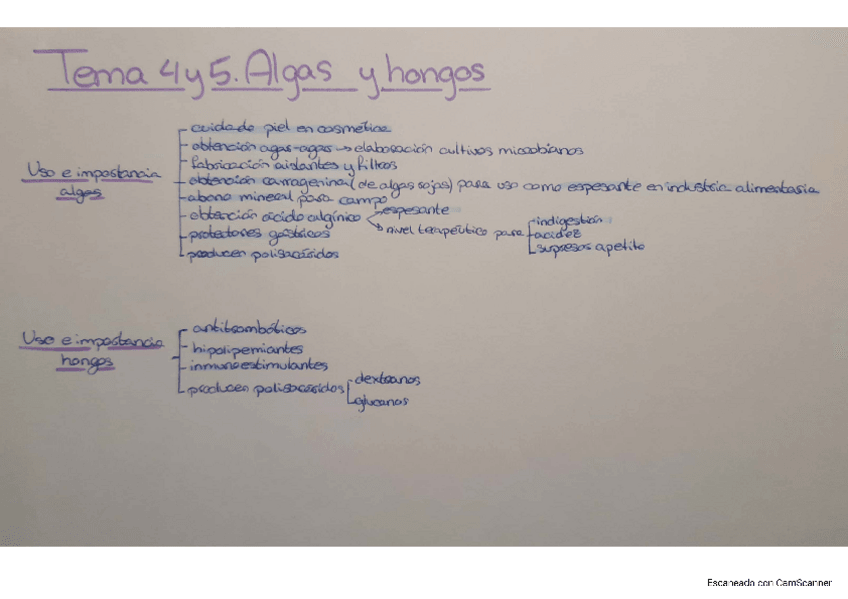 Tema 4 y 5. Algas y hongos
Uso e importancia algas
cuidado piel en cosmética
obtención agar-agar → elaboración cultivos microbianos
fabricación aislantes y filtros
obtención carragenina (de algas rojas) para uso como espesante en industria alimentaria
abono mineral para campo
obtención ácido algínico
espesante
nivel terapéutico para
indigestión
acidez
supresor apetito
protectores gástricos
producen polisacáridos
Uso e importancia hongos
antitrombóticos
hipolipemiantes
inmunoestimulantes
producen polisacáridos
dextranos
glucanos
Escaneado con CamScanner